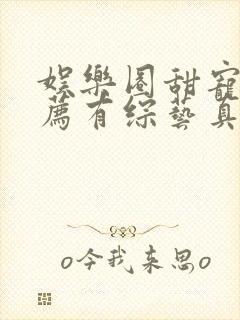 娱樂圈甜寵
薦有综藝真
o今我来思o